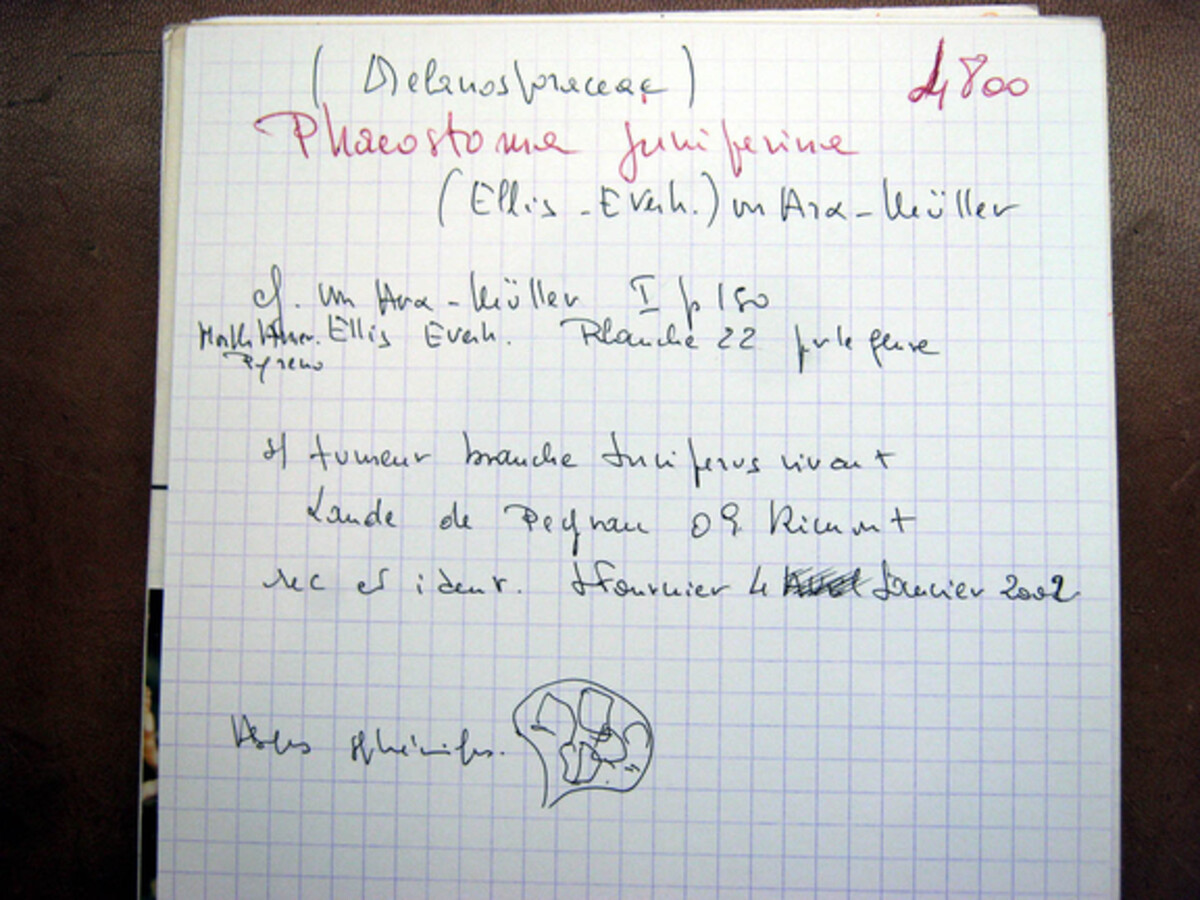 (Melanosporaceae) 4800
Phaeostoma juniperina
(Ellis - Everh.) von Arx - Müller
cf. von Arx - Müller I p 150
North Amer. Ellis Everh. Planche 22 pr le genre
Pyreno
s/ tumeur branche Juniperus vivant
Lande de Peyrau 09 Rimont
rec et ident. JFournier 4 Janvier 2002
Asques sphériques.